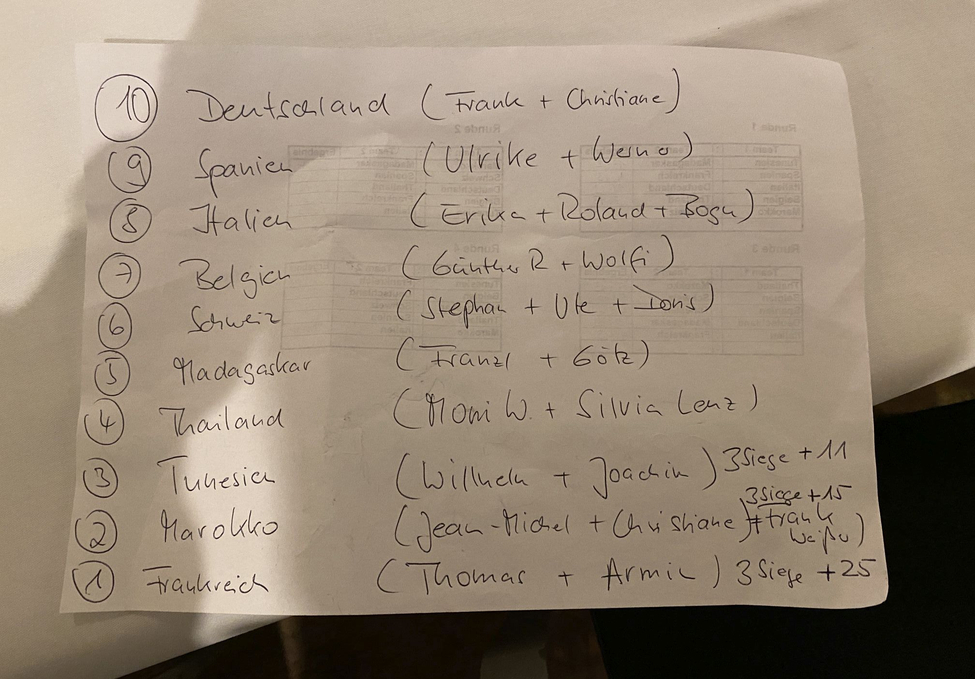 10 Deutschland (Frank + Christiane)
9 Spanien (Ulrike + Werner)
8 Italien (Erika + Roland + Bogu)
7 Belgien (Günther R + Wolfi)
6 Schweiz (Stephan + Ute + Doris)
5 Madagaskar (Franzl + Götz)
4 Thailand (Moni W. + Silvia Lenz)
3 Tunesien (Wilhelm + Joachim) 3 Siege + 11
3 Siege + 15
2 Marokko (Jean-Michel + Christiane) + Frank
Weißer)
1 Frankreich (Thomas + Armin) 3 Siege + 25
Runde 1
Runde 2
Runde 3
Runde 4